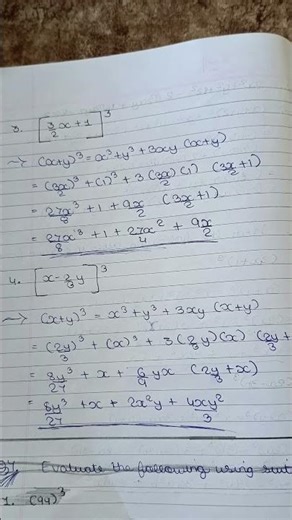 3. [3/2 x + 1]³
~> (x+y)³ = x³ + y³ + 3xy (x+y)
= (3x/2)³ + (1)³ + 3 (3x/2) (1) (3x/2 + 1)
= 27x³/8 + 1 + 9x/2 (3x/2 + 1)
= 27x³/8 + 1 + 27x²/4 + 9x/2
4. [x - 2/3 y]³
~> (x+y)³ = x³ + y³ + 3xy (x+y)
= (2y/3)³ + (x)³ + 3 (2/3 y) (x) (2y/3 +
= 8y³/27 + x + 6/9 yx (2y/3 + x)
= 8y³/27 + x + 2x²y + 4xy²/3
Evaluate the following using suit
1. (99)³